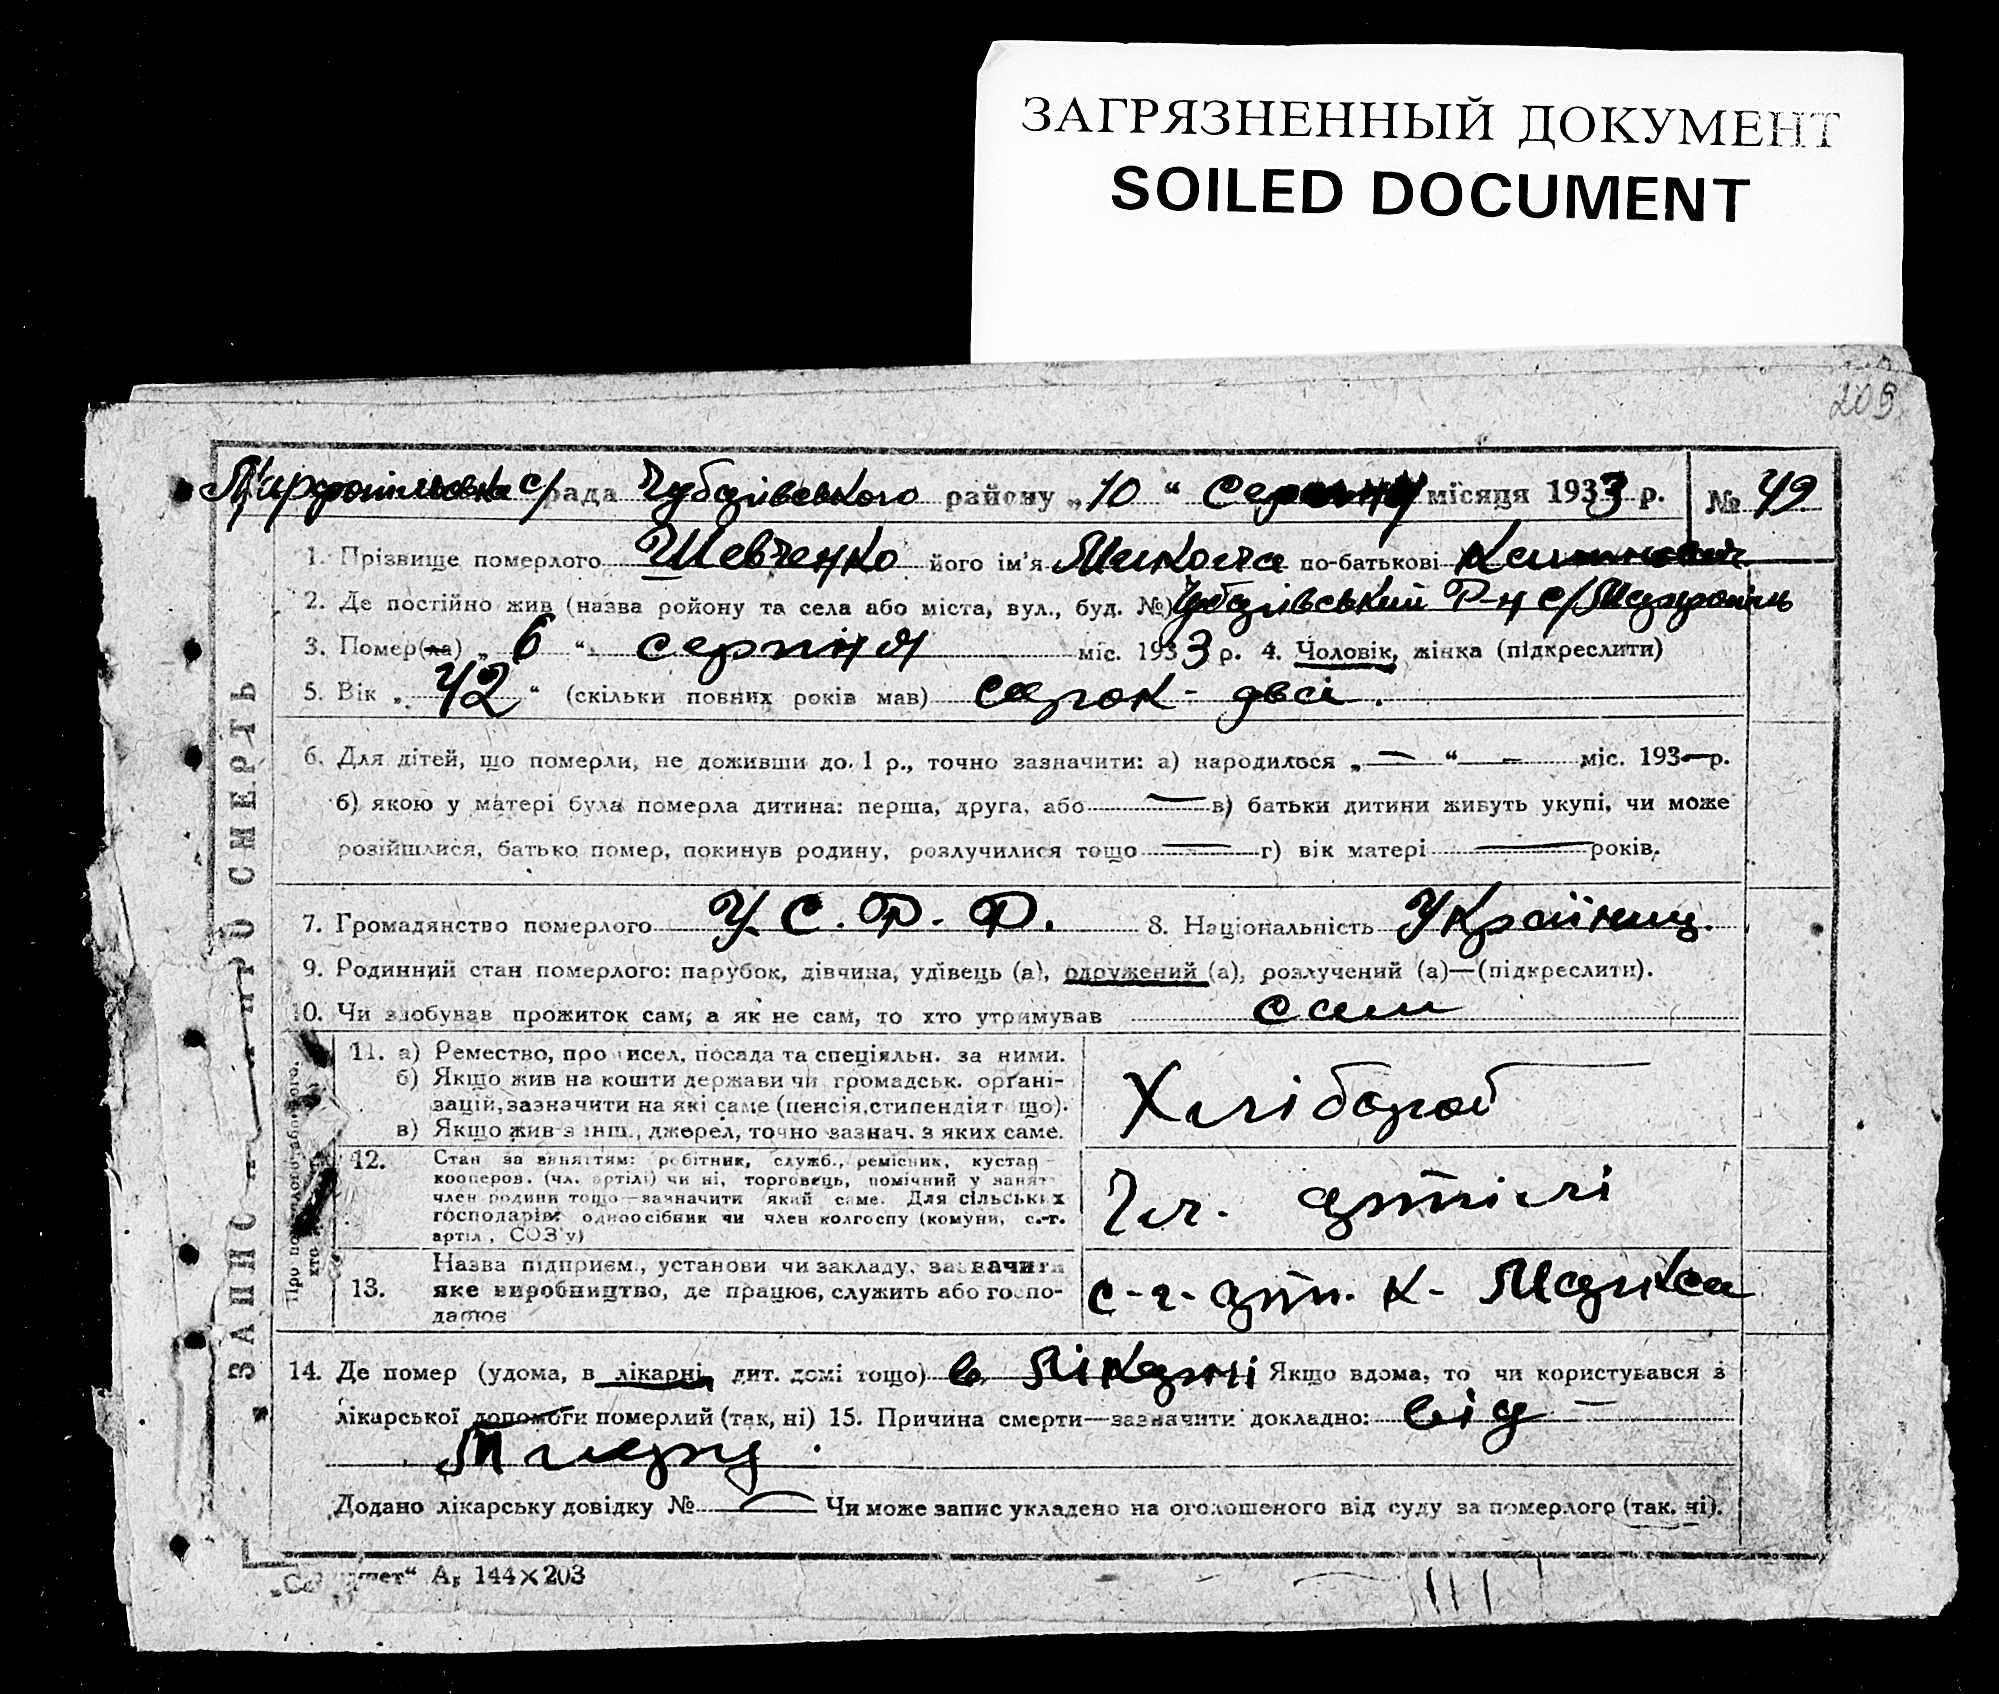 ЗАГРЯЗНЕННЫЙ ДОКУМЕНТ
SOILED DOCUMENT
209
с/рада Чубарівського району „10“ Серпня місяця 1933 р. № 49
1. Прізвище померлого Шевченко його ім'я Микола по-батькові
2. Де постійно жив (назва ройону та села або міста, вул., буд. №) Чубарівський Р-н с/
3. Помер(ла) „6“ серпня міс. 1933 р. 4. Чоловік, жінка (підкреслити)
5. Вік „42“ (скільки повних років мав) сорок-два.
6. Для дітей, що померли, не доживши до 1 р., точно зазначити: а) народилося „—“ — міс. 193—р.
б) якою у матері була померла дитина: перша, друга, або — в) батьки дитини живуть укупі, чи може
розійшлися, батько помер, покинув родину, розлучилися тощо — г) вік матері — років.
7. Громадянство померлого У.С.Р.Р. 8. Національність Українц.
9. Родинний стан померлого: парубок, дівчина, удівець (а), одружений (а), розлучений (а)—(підкреслити).
10. Чи здобував прожиток сам; а як не сам, то хто утримував сам
ЗАПИС ПРО СМЕРТЬ
11. а) Ремество, промисел, посада та спеціяльн. за ними.
б) Якщо жив на кошти держави чи громадськ. органі-
зацій, зазначити на які саме (пенсія, стипендія тощо).
в) Якщо жив з інш., джерел, точно зазнач. з яких саме.
Хлібороб
12. Стан за заняттям: робітник, служб., ремісник, кустар—
кооперов. (чл. артілі) чи ні, торговець, помічний у занят.
член родини тощо—зазначити який саме. Для сільських
господарів: одноосібник чи член колгоспу (комуни, с.-г.
артіл., СОЗ'у)
Чл. артілі
13. Назва підприєм., установи чи закладу, зазначити
яке виробництво, де працює, служить або госпо-
дарює
с-г. арт. К. Маркса
14. Де помер (удома, в лікарні, дит. домі тощо) в лікарні Якщо вдома, то чи користувався з
лікарської допомоги померлий (так, ні) 15. Причина смерти—зазначити докладно: від —
Додано лікарську довідку № — Чи може запис укладено на оголошеного від суду за померлого (так, ні).
А5 144×203